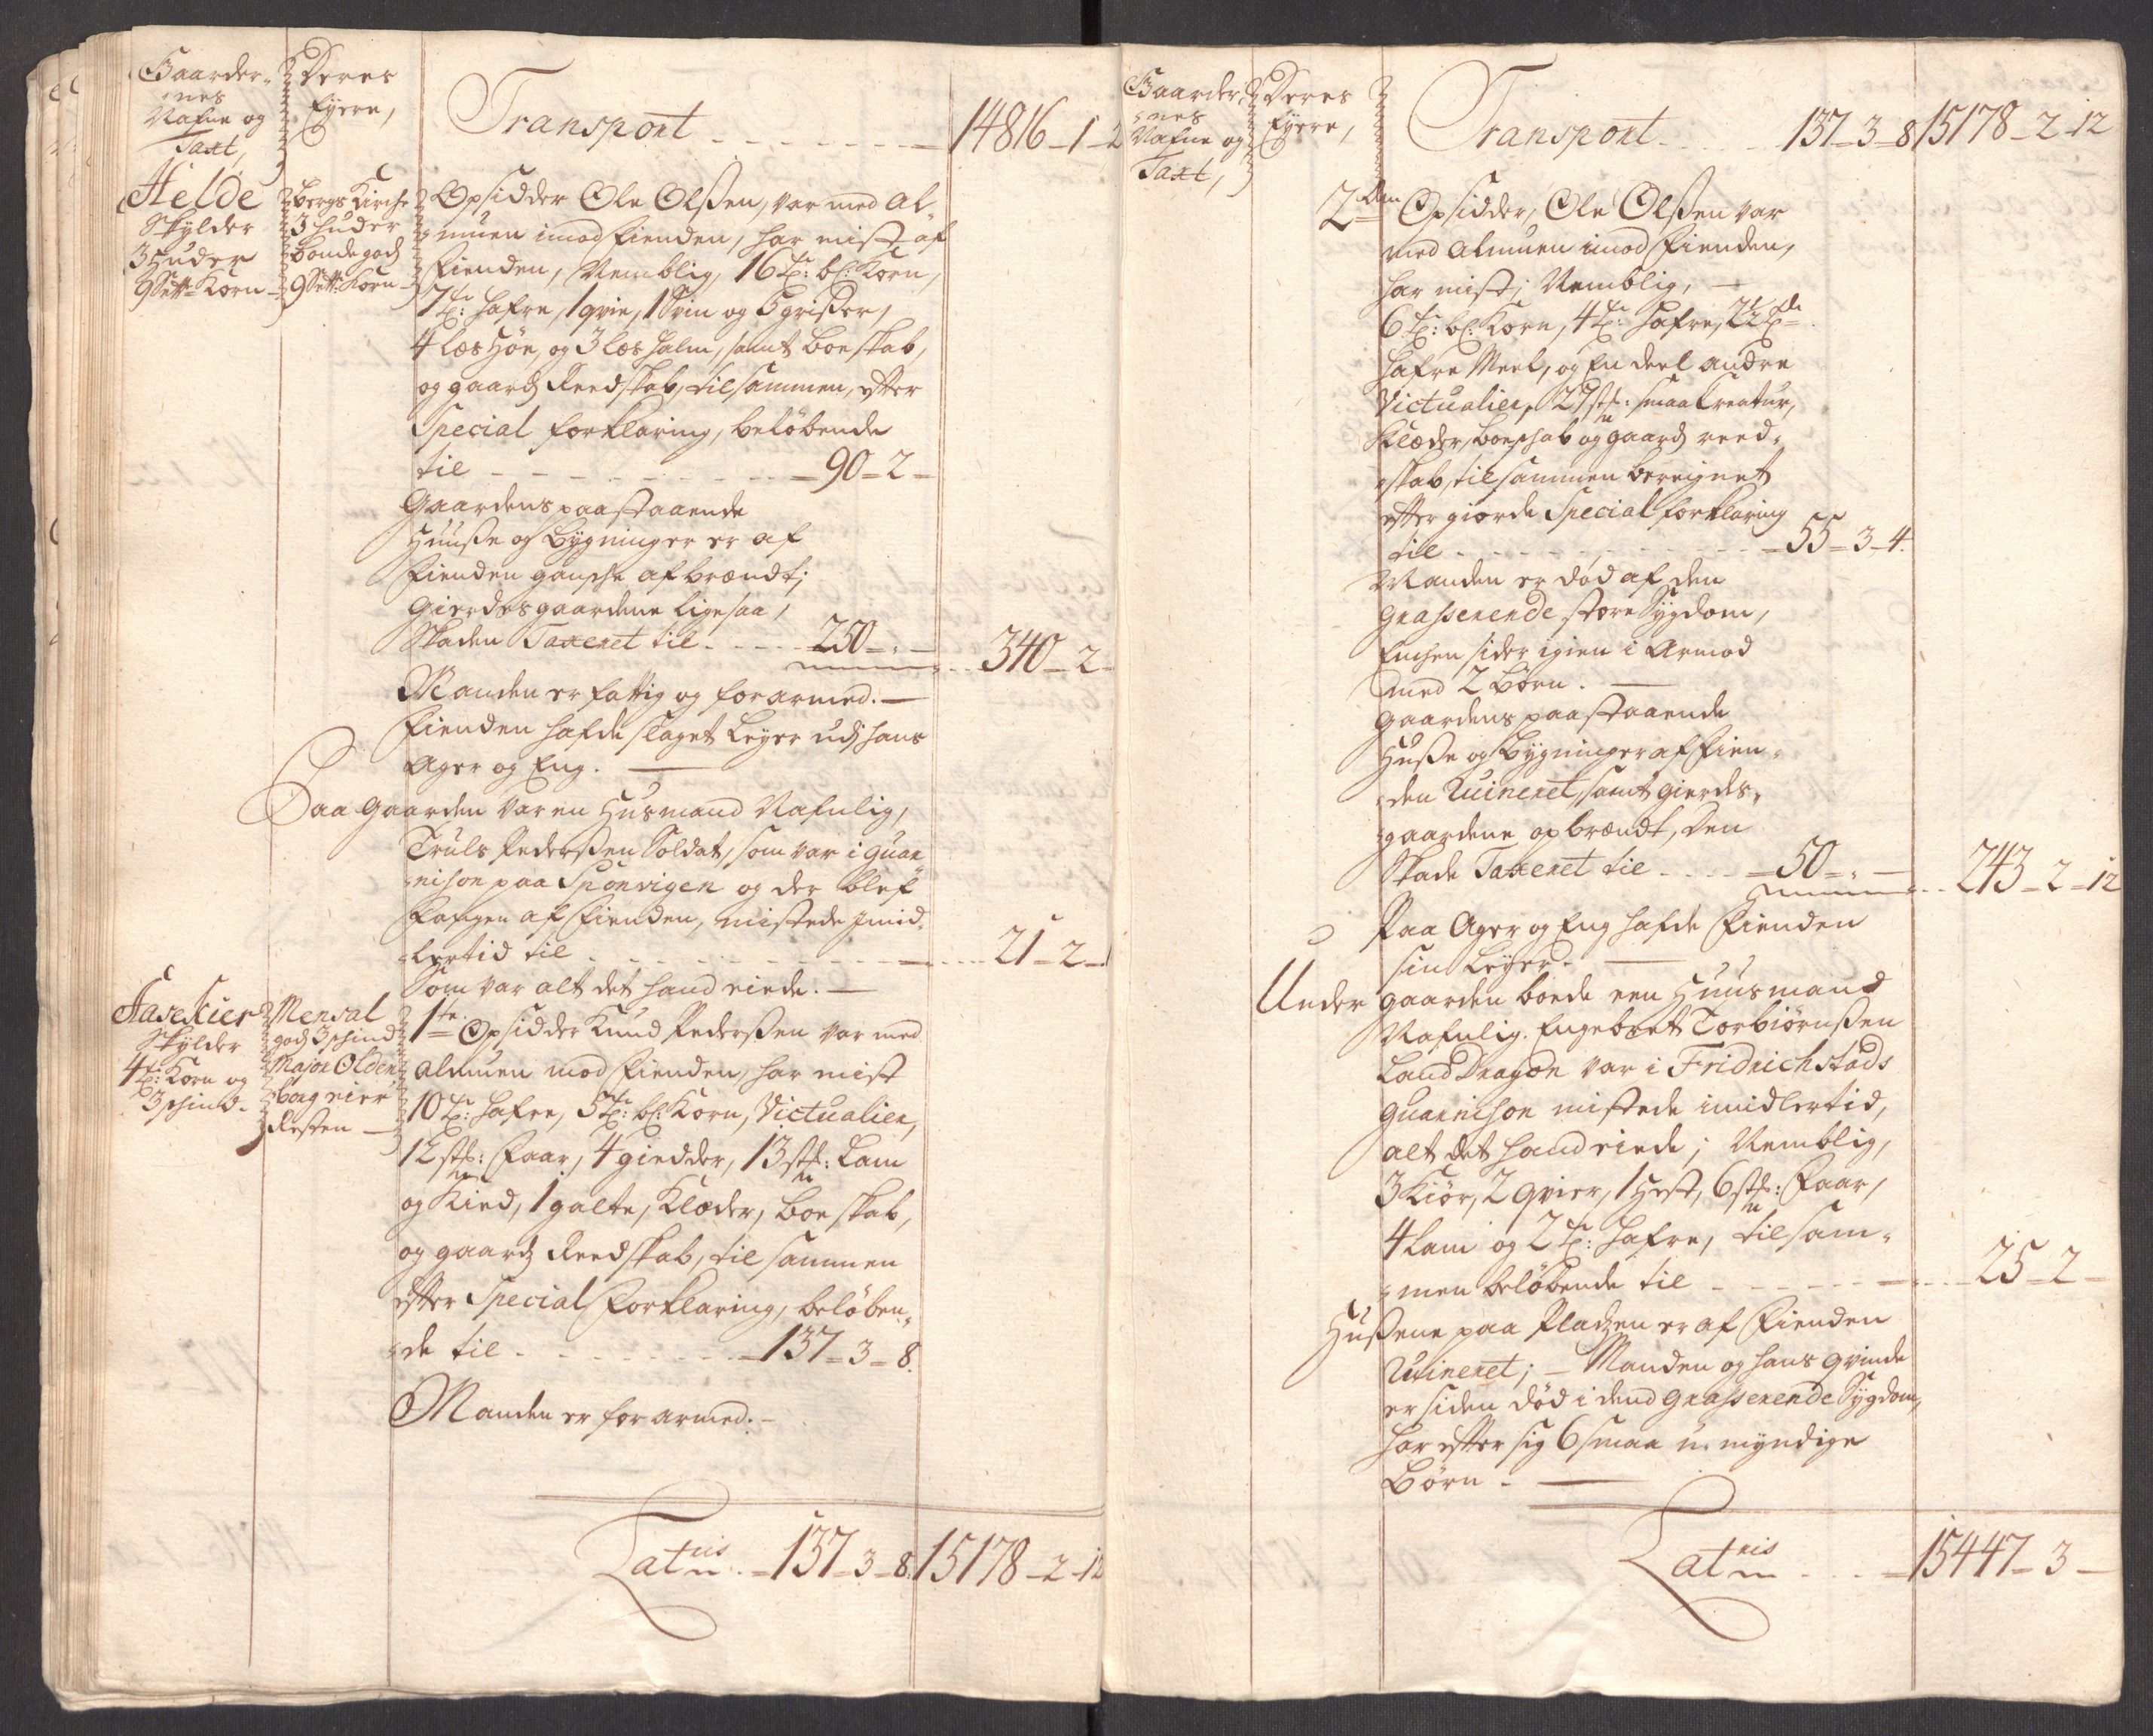 Gaarder-
nes
Nafne og
Taxt,
Deres
Eyere,
Transport - - - - - - - 14816 - 1 - 2
Helde
Skylder
3 Huder
9 Sett: Korn -
bergs Kirche
3 huder
bondegods
9 Sett: Korn -
Opsidder Ole Olßen, var med al-
muen imod fienden, har mist af
fienden, Nemblig, 16 Tr: bl: Korn,
7 Tr: hafre, 1 qvie, 1 Svin og 5 grißer,
4 læs Høe, og 3 læs halm, samt boeskab,
og gaards Reedskab, tilsammen, efter
Special forklaring, beløbende
til - - - - - - - - 90 - 2 -
Gaardens paastaaende
Huuße og bygninger er af
fienden gansche afbrændt;
Gierdesgaardene ligesaa,
Skaden Taxeret til - - - - 250 - „ - - - 340 - 2 -
Manden er fattig og forarmed. -
Fienden hafde slaget Leyer udj hans
Ager og Eng. -
Paa Gaarden var en Husmand Nafnlig,
Truls Pederßen Soldat, som var i Guar-
nison paa Sponvigen og der blef
fangen af fienden, mistede jmid-
lertid til - - - - - - - - - 21 - 2 -
Som var alt det hand eiede. -
Haseskier
Skylder
4 Tr: Korn og
3 schind -
Mensal
gods 3 schind
Major Olden
borg eier
Resten -
1te Opsidder Knud Pederßen var med
almuen mod fienden, har mist
10 Tr: hafre, 5 Tr: bl: Korn, Victualier,
12 stk: Faar, 4 giedder, 13 stk: Lam
og Kied, 1 galte, Klæder, boeskab,
og gaards Reedskab, til sammen
efter Special Forklaring, beløben-
de til - - - - - - - 137 - 3 - 8.
Manden er forarmed. -
Lateris - 137 - 3 - 8. 15178 - 2 - 12
Gaarder-
nes
Nafne og
Taxt,
Deres
Eyere,
Transport - - - 137 - 3 - 8 15178 - 2 - 12
2den Opsidder, Ole Olßen var
med almuen imod fienden,
har mist; Nemblig, -
6 Tr: bl: Korn, 4 Tr: hafre, 2½ Tde
hafre Meel, og En deel andre
Victualier, 27 stk: smaa Creatur,
Klæder, boeschab og gaards reed-
skab, tilsammen beregnet
efter giorde Special forklaring
til - - - - - - - - 55 - 3 - 4.
Manden er død af den
Grasserende store Sygdom,
Enchen sider igien i Armod
med 2 børn. -
Gaardens paastaaende
Huße og bygninger af fien-
den Ruineret, samt gierdes-
gaardene opbrændt, Den
Skade Taxeret til - - - 50 - „ - - - 243 - 2 - 12
Paa Ager og Eng hafde fienden
sin Leyer. -
Under gaarden boede een Huusmand
Nafnlig. Engebret Torbiørnßen
Land Dragon var i Fridrichstads
Guarnison mistede imidlertid,
alt det hand eiede; Nemblig,
3 Kiør, 2 qvier, 1 Hest, 6 stk: Faar,
4 Lam og 2 Tr: hafre, til sam-
men beløbende til - - - - - - 25 - 2 -
Hußene paa Pladzen er af fienden
Ruineret; - Manden og hans qvinde
er siden død i dend Grasserende Sygdom,
har efter sig 6 smaa u-myndige
børn. -
Lateris - - - 15447 - 3 -